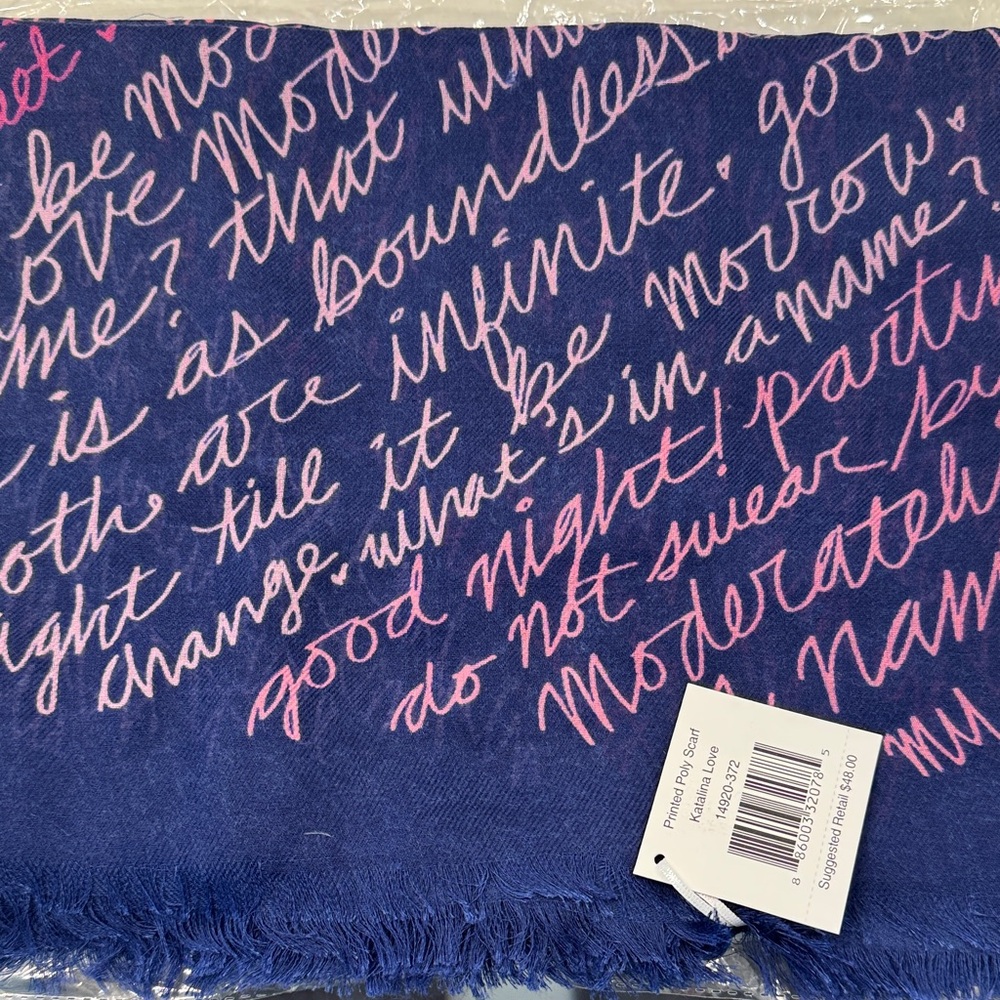 eet
be mod
ove Mode
me? that whi
is as boundless
oth are infinite. good
ight till it be morrow.
change. what's in a name?
good night! partin
do not swear by
Moderately
nam
my
Printed Poly Scarf
Katalina Love
14920-372
8 86003 32078 5
Suggested Retail $48.00